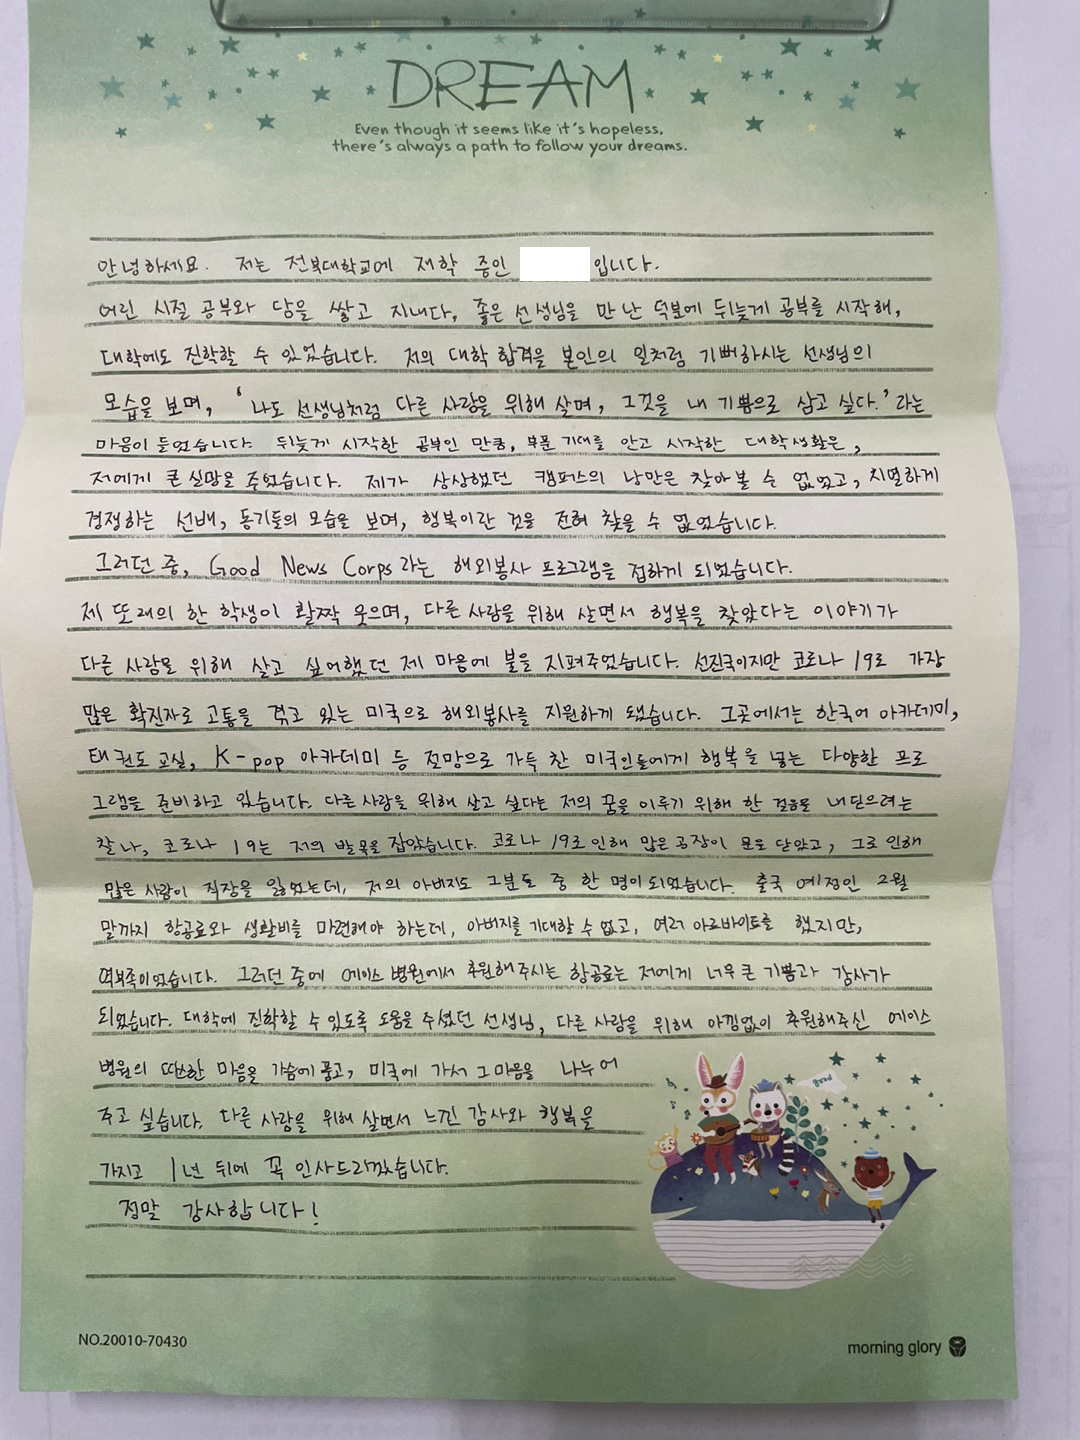 DREAM
Even though it seems like it's hopeless,
there's always a path to follow your dreams.
안녕하세요. 저는 전북대학교에 재학 중인 입니다.
어린 시절 공부와 담을 쌓고 지내다, 좋은 선생님을 만난 덕분에 뒤늦게 공부를 시작해,
대학에도 진학할 수 있었습니다. 저의 대학 합격을 본인의 일처럼 기뻐하시는 선생님의
모습을 보며, '나도 선생님처럼 다른 사람을 위해 살며, 그것을 내 기쁨으로 삼고 싶다.'라는
마음이 들었습니다. 뒤늦게 시작한 공부인 만큼, 부푼 기대를 안고 시작한 대학생활은,
저에게 큰 실망을 주었습니다. 제가 상상했던 캠퍼스의 낭만은 찾아볼 수 없었고, 치열하게
경쟁하는 선배, 동기들의 모습을 보며, 행복이란 것을 전혀 찾을 수 없었습니다.
그러던 중, Good News Corps라는 해외봉사 프로그램을 접하게 되었습니다.
제 또래의 한 학생이 활짝 웃으며, 다른 사람을 위해 살면서 행복을 찾았다는 이야기가
다른 사람을 위해 살고 싶어했던 제 마음에 불을 지펴주었습니다. 선진국이지만 코로나 19로 가장
많은 확진자로 고통을 겪고 있는 미국으로 해외봉사를 지원하게 됐습니다. 그곳에서는 한국어 아카데미,
태권도 교실, K-pop 아카데미 등 절망으로 가득 찬 미국인들에게 행복을 넣는 다양한 프로
그램을 준비하고 있습니다. 다른 사람을 위해 살고 싶다는 저의 꿈을 이루기 위해 한 걸음을 내딛으려는
찰나, 코로나 19는 저의 발목을 잡았습니다. 코로나 19로 인해 많은 공장이 문을 닫았고, 그로 인해
많은 사람이 직장을 잃었는데, 저의 아버지도 그분들 중 한 명이 되었습니다. 출국 예정인 2월
말까지 항공료와 생활비를 마련해야 하는데, 아버지를 기대할 수 없고, 여러 아르바이트를 했지만,
역부족이었습니다. 그러던 중에 에이스 병원에서 후원해주시는 항공료는 저에게 너무 큰 기쁨과 감사가
되었습니다. 대학에 진학할 수 있도록 도움을 주셨던 선생님, 다른 사람을 위해 아낌없이 후원해주신 에이스
병원의 따뜻한 마음을 가슴에 품고, 미국에 가서 그 마음을 나누어
주고 싶습니다. 다른 사람을 위해 살면서 느낀 감사와 행복을
가지고 1년 뒤에 꼭 인사드리겠습니다.
정말 감사합니다!
NO.20010-70430
morning glory